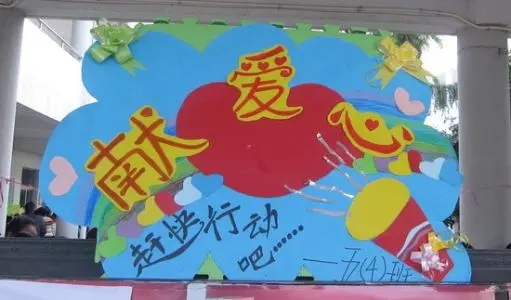 献爱心
赶快行动
吧……
——五(4)班